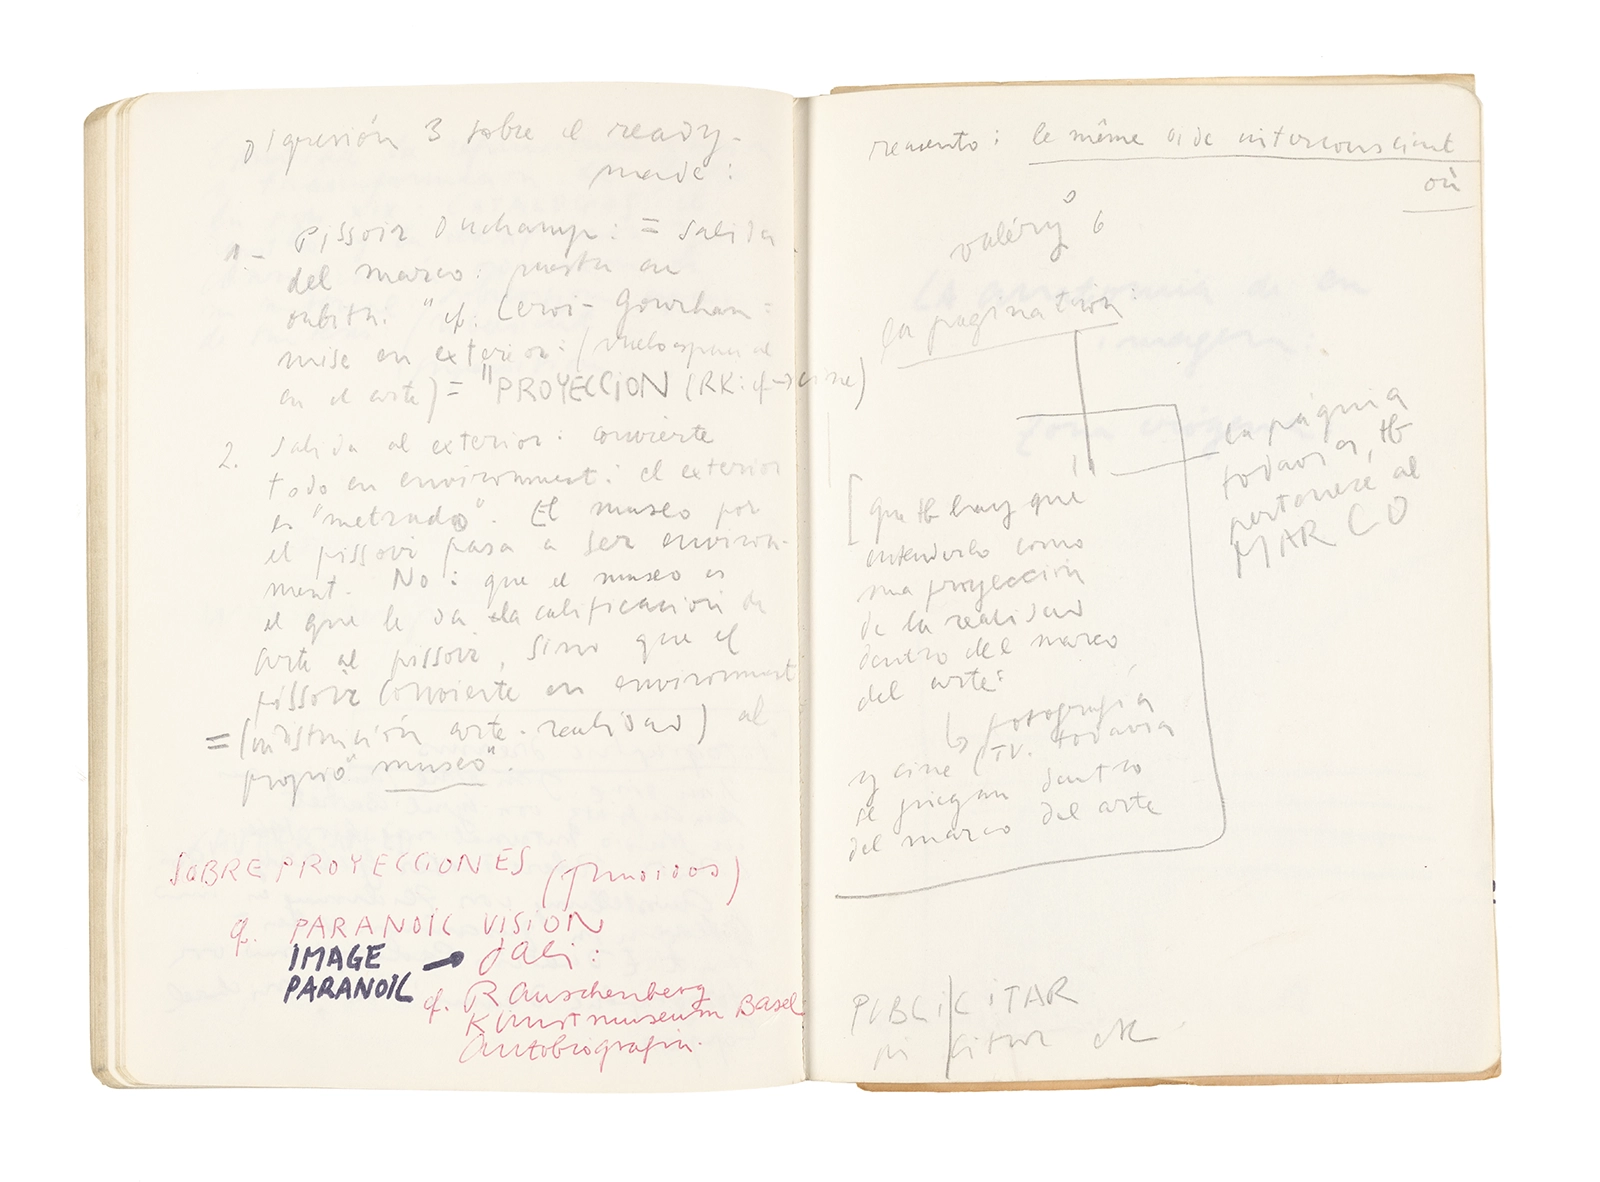 Digresión 3 sobre el ready-
made:
1.- Pissoir Duchamp: = salida
del marco: puesta en
órbita: "cf. Leroi-Gourhan =
mise en exterior: (vuelo espacial
en el arte) = "PROYECCION (RK: cf → cine)
2. Salida al exterior: convierte
todo en environment: el exterior
es "metrado". El museo por
el pissoir pasa a ser environ-
ment. No: que el museo es
el que le da la calificación de
arte al pissoir, sino que el
pissoir convierte en environment
= (indistinción arte-realidad) al
propio "museo".
SOBRE PROYECCIONES
cf. PARANOIC VISION
IMAGE → Dali:
PARANOIC
cf. Rauschenberg
Kunstmuseum Basel
Autobiografia.
recuento: le même vide interconscient
où
Valéry 6
la pagination:
la página
todavía, tb
pertenece al
MARCO
[que tb hay que
entenderlo como
una proyección
de la realidad
dentro del marco
del arte:
↳ fotografía
y cine (TV. todavía
se juegan dentro
del marco del arte
PUBLICITAR
citar